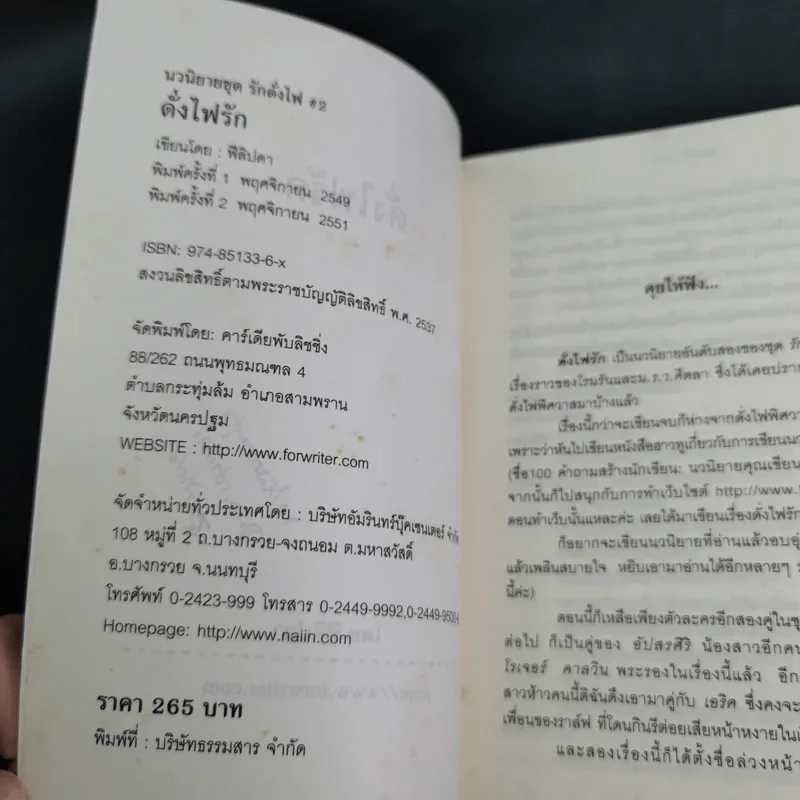 นวนิยายชุด รักดั่งไฟ #2
ดั่งไฟรัก
เขียนโดย : ฟีลิปดา
พิมพ์ครั้งที่ 1 พฤศจิกายน 2549
พิมพ์ครั้งที่ 2 พฤศจิกายน 2551
ISBN: 974-85133-6-x
สงวนลิขสิทธิ์ตามพระราชบัญญัติลิขสิทธิ์ พ.ศ. 2537
จัดพิมพ์โดย: คาร์เดียพับลิชชิ่ง
88/262 ถนนพุทธมณฑล 4
ตำบลกระทุ่มล้ม อำเภอสามพราน
จังหวัดนครปฐม
WEBSITE : http://www.forwriter.com
จัดจำหน่ายทั่วประเทศโดย : บริษัทอัมรินทร์บุ๊คเซนเตอร์ จำกัด
108 หมู่ที่ 2 ถ.บางกรวย-จงถนอม ต.มหาสวัสดิ์
อ.บางกรวย จ.นนทบุรี
โทรศัพท์ 0-2423-999 โทรสาร 0-2449-9992,0-2449-9500-6
Homepage: http://www.naiin.com
ราคา 265 บาท
พิมพ์ที่ : บริษัทธรรมสาร จำกัด
คุยให้ฟัง...
ดั่งไฟรัก เป็นนวนิยายอันดับสองของชุด รัก
เรื่องราวของโรมรันและม.ร.ว.ศีตลา ซึ่งได้เคยปราก
ดั่งไฟพิศวาสมาบ้างแล้ว
เรื่องนี้กว่าจะเขียนจบก็ห่างจากดั่งไฟพิศวา
เพราะว่าหันไปเขียนหนังสือฮาวทูเกี่ยวกับการเขียนนว
(ชื่อ100 คำถามสร้างนักเขียน: นวนิยายคุณเขียน
จากนั้นก็ไปสนุกกับการทำเว็บไซต์ http://www.
ตอนทำเว็บนั้นแหละค่ะ เลยได้มาเขียนเรื่องดั่งไฟรัก
ก็อยากจะเขียนนวนิยายที่อ่านแล้วอบอุ่
แล้วเพลินสบายใจ หยิบเอามาอ่านได้อีกหลายๆ
นี้ค่ะ)
ตอนนี้ก็เหลือเพียงตัวละครอีกสองคู่ในชุ
ต่อไป ก็เป็นคู่ของ อัปสรศิริ น้องสาวอีกคน
โรเจอร์ คาลวิน พระรองในเรื่องนี้แล้ว อีก
สาวห้าวคนนี้ดิฉันดึงเอามาคู่กับ เอริค ซึ่งคงจะ
เพื่อนของราล์ฟ ที่โดนกินรีต่อยเสียหน้าหงายใน
และสองเรื่องนี้ก็ได้ตั้งชื่อล่วงหน้า